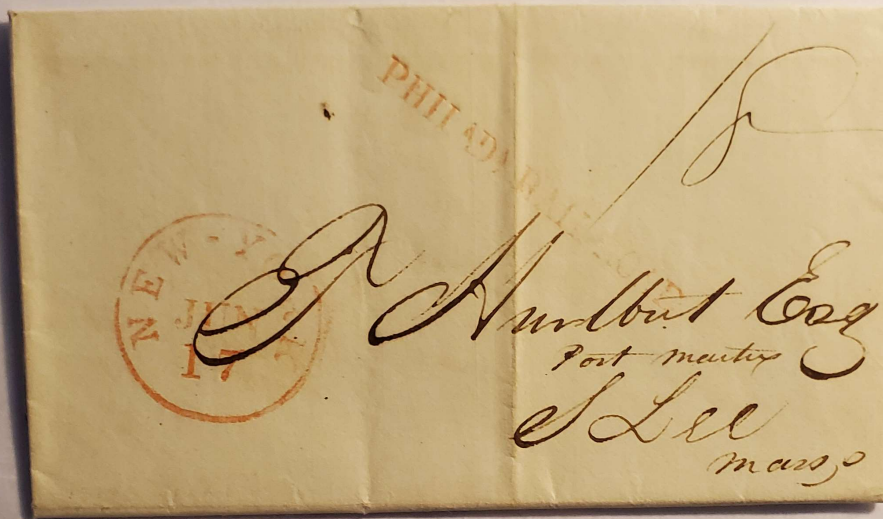 18
PHILADA RAIL
NEW-YORK
JUN
17
T Hurlbut Esq
Post Master
S Lee
Mass